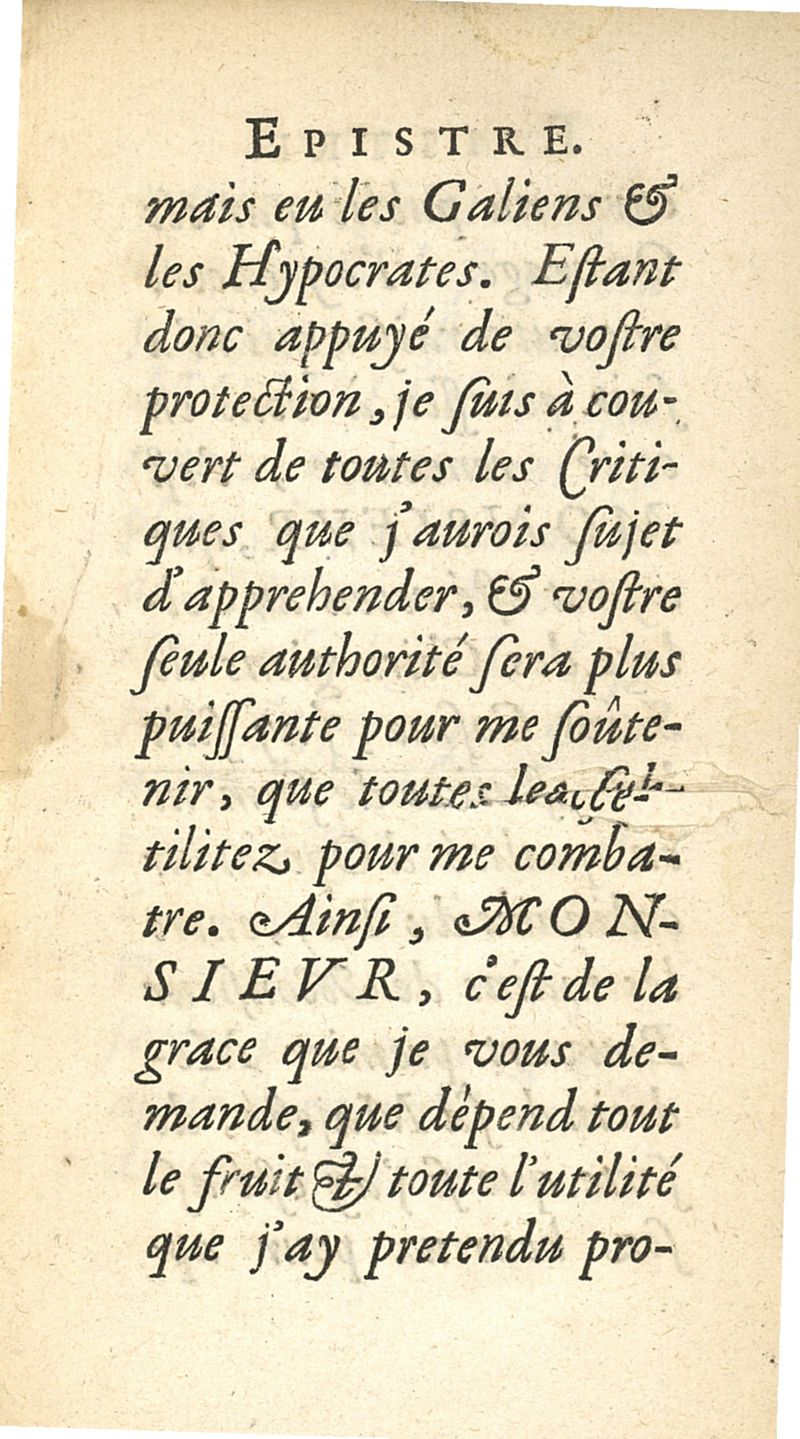 EPISTRE.
mais eu les Galiens &
les Hypocrates. Eſtant
donc appuyé de voſtre
protection, je ſuis à cou-
vert de toutes les Criti-
ques que j'aurois ſujet
d'apprehender, & voſtre
ſeule authorité ſera plus
puiſſante pour me ſoûte-
nir, que toutes
tilitez pour me comba-
tre. Ainſi, MON-
SIEVR, c'eſt de la
grace que je vous de-
mande, que dépend tout
le fruit & toute l'utilité
que j'ay pretendu pro-